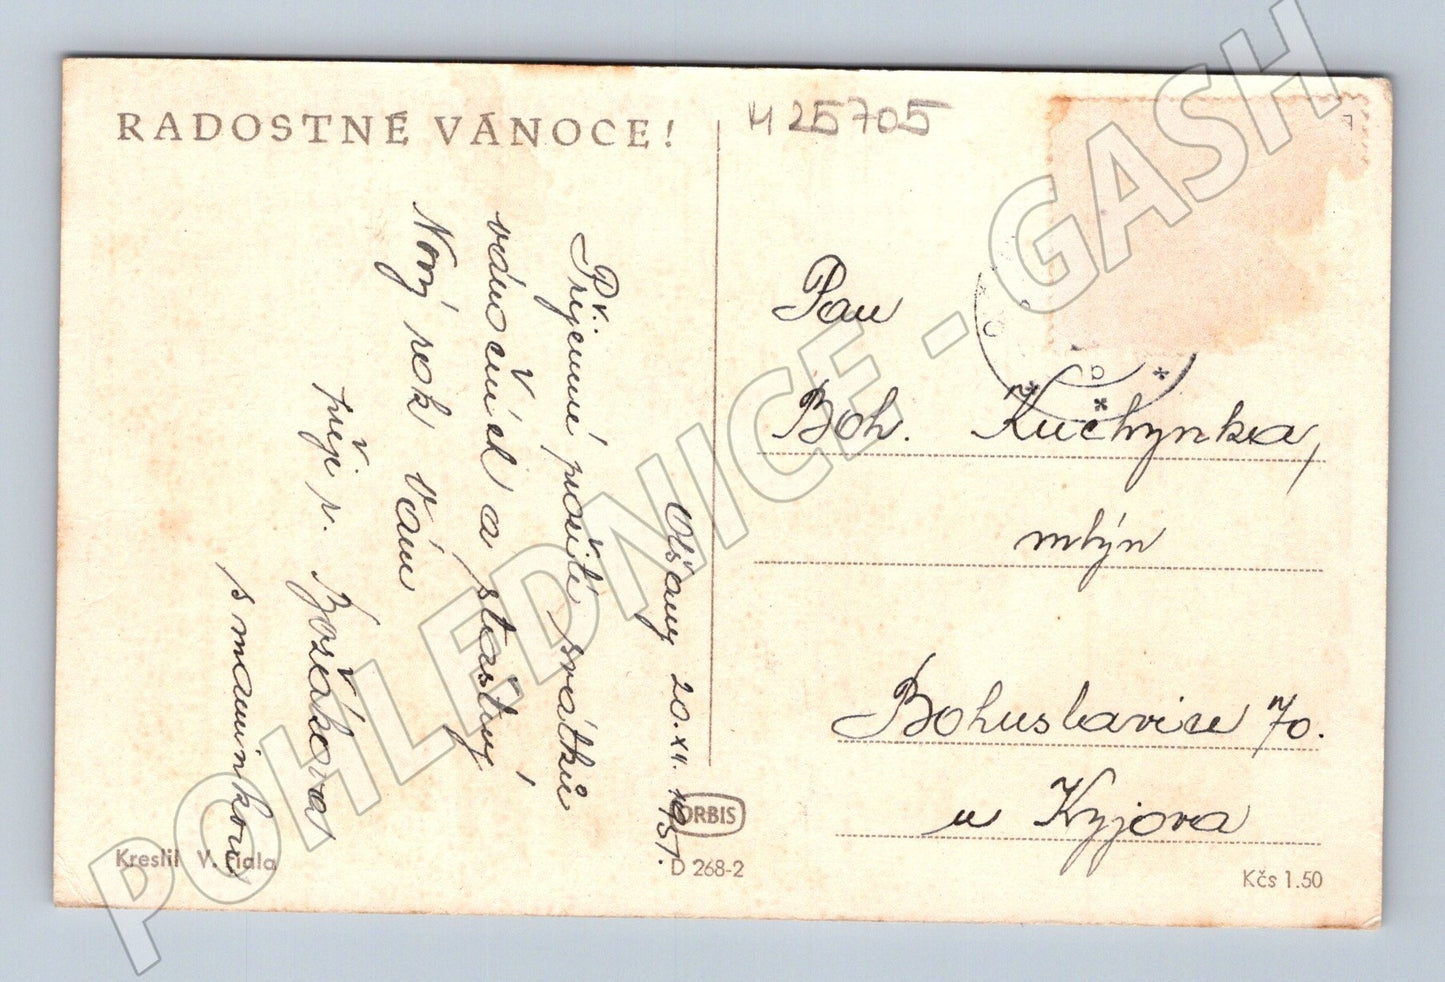 RADOSTNÉ VÁNOCE!
425705
Olšany 20. XII. 1951.
Příjemné prožití svátků
vánočních a šťastný
Nový rok Vám
přeje r. Božáková
s maminkou
Pan
Boh. Kuchynka,
mlýn
Bohuslavice 70.
u Kyjova
Kreslil V. Fiala
ORBIS
D 268-2
Kčs 1.50
POHLEDNICE - GASH